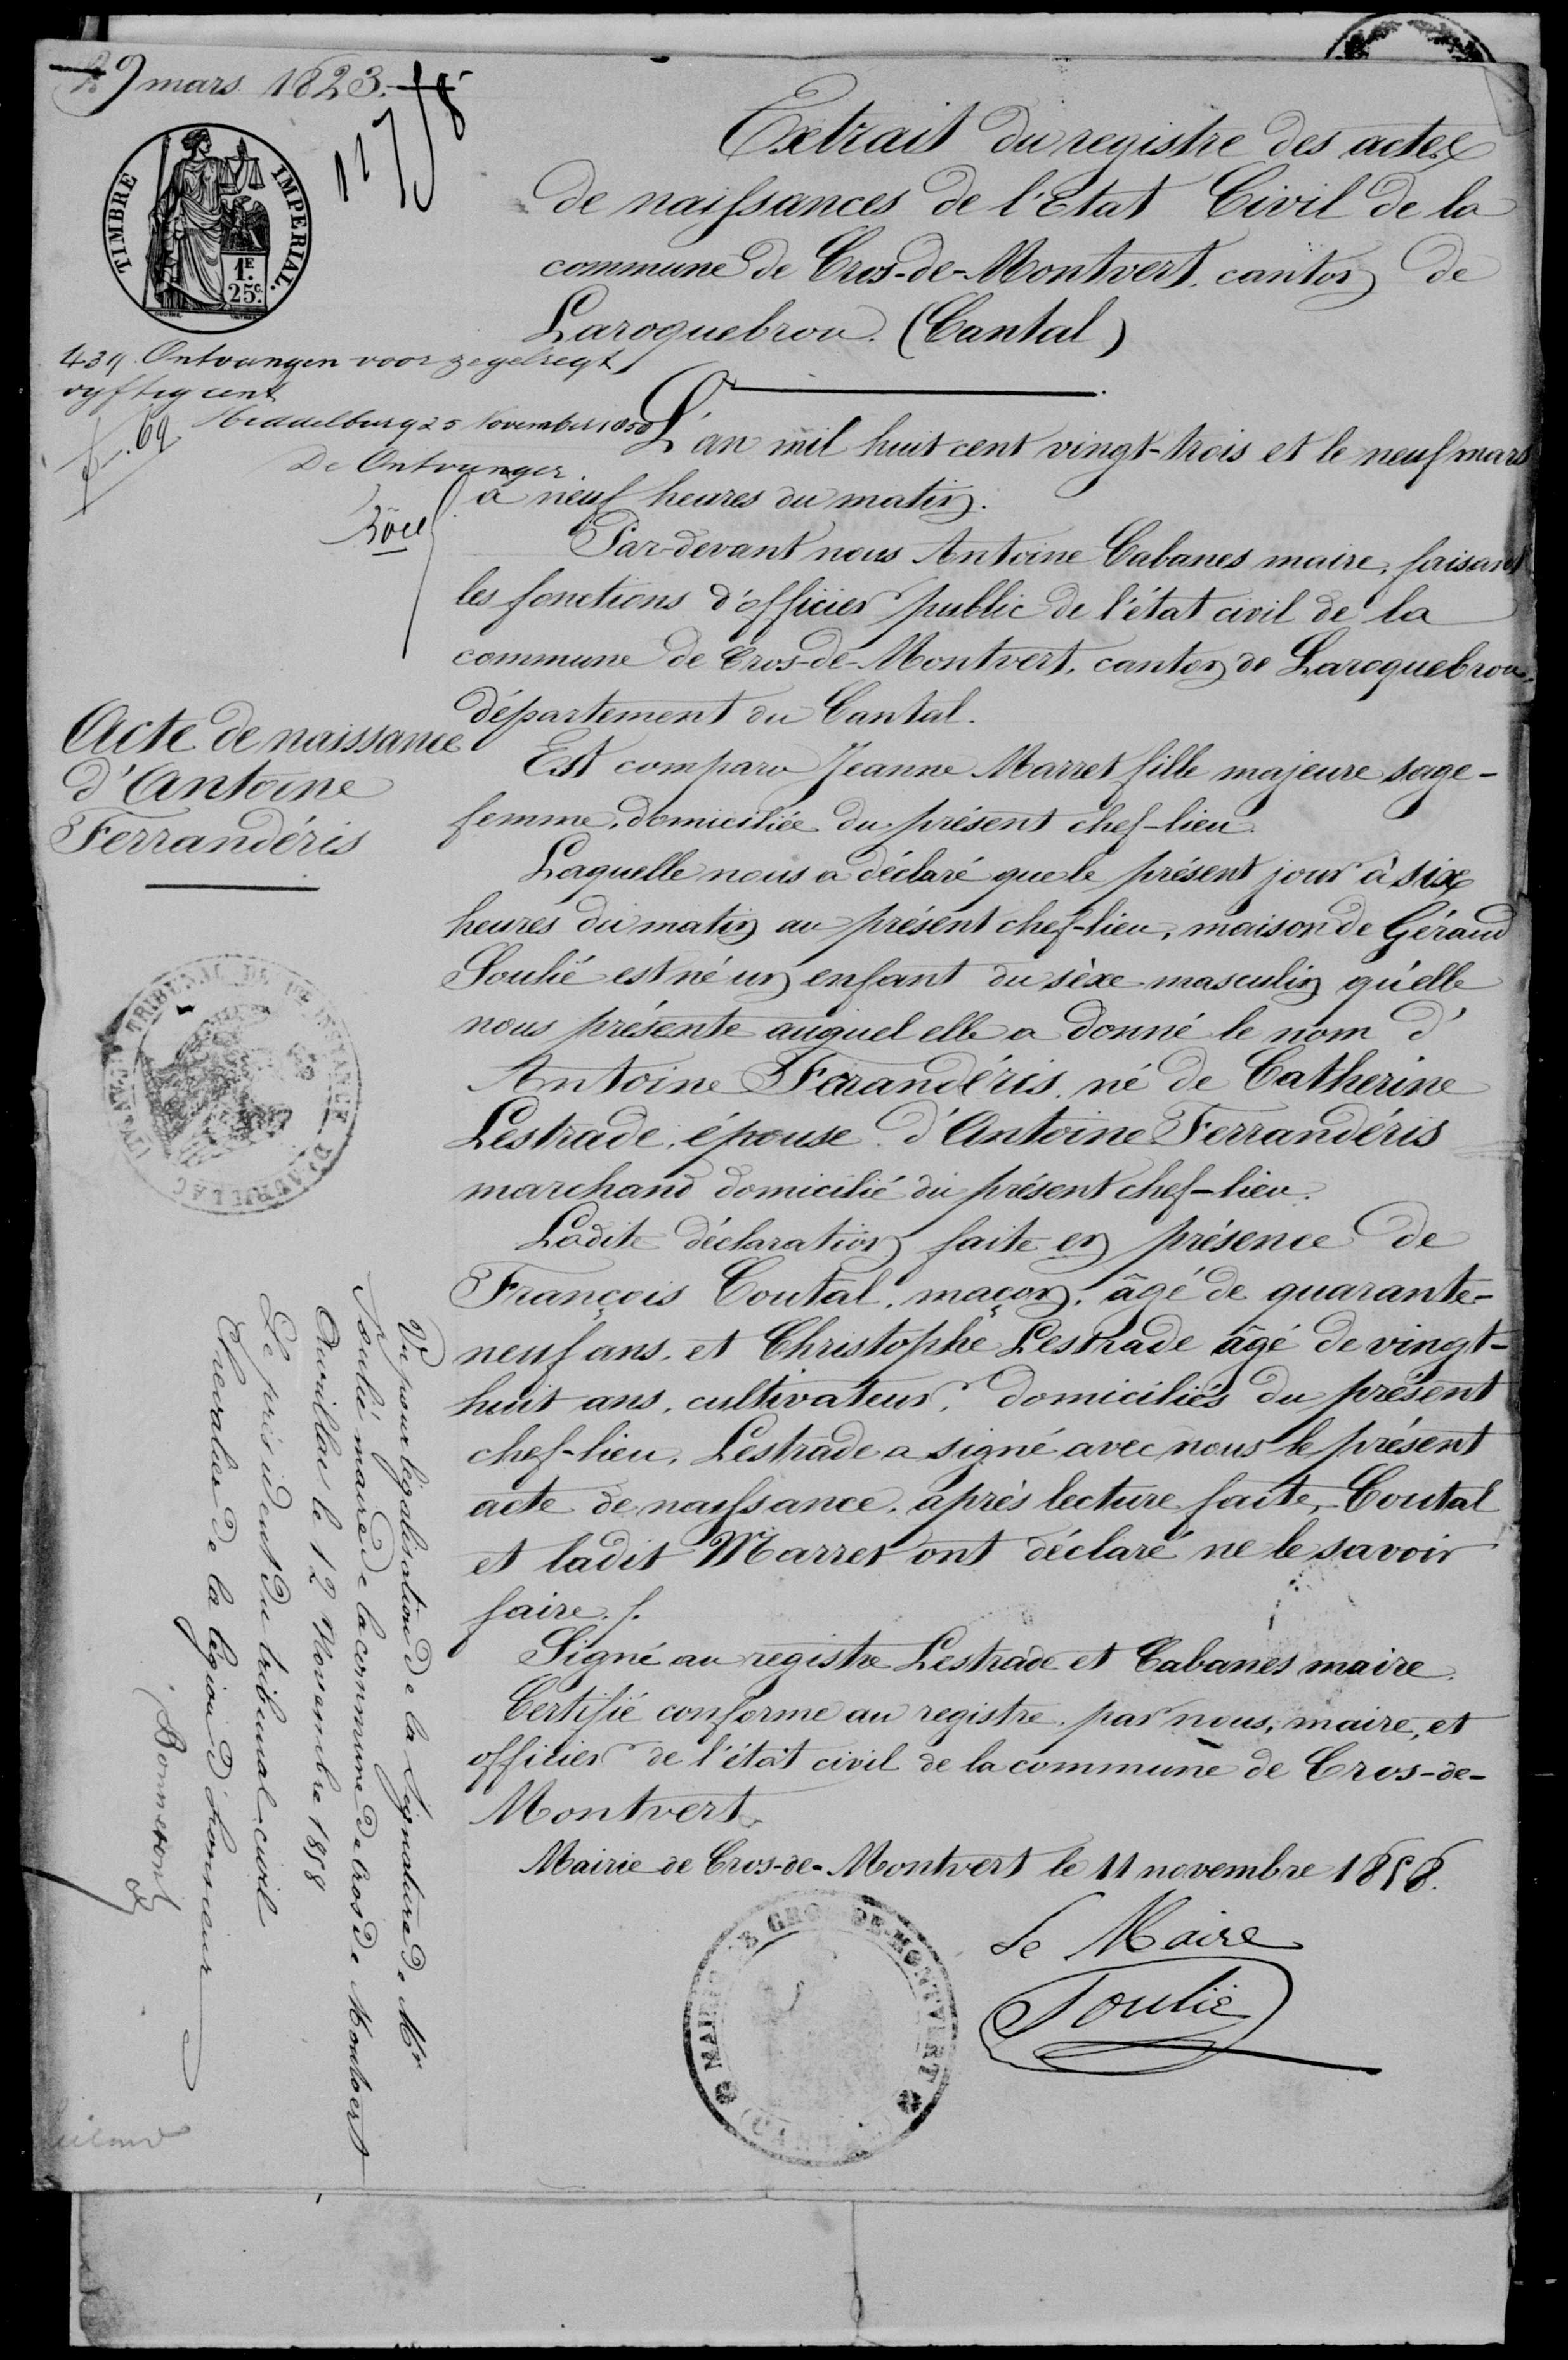 9 mars 1823.
TIMBRE IMPERIAL.
1F.
25c.
Extrait du registre des actes
de naissances de l'Etat Civil de la
commune de Cros-de-Montvert, canton de
Laroquebrou. (Cantal)
439 Ontvangen voor zegelregt
vyftig cent
Middelburg 25 November 1858
De Ontvanger
Acte de naissance
d'Antoine
Ferrandéris
L'an mil huit cent vingt-trois et le neuf mars
à neuf heures du matin.
Par-devant nous Antoine Cabanes maire, faisant
les fonctions d'officier public de l'état civil de la
commune de Cros-de-Montvert, canton de Laroquebrou,
département du Cantal.
Est comparu Jeanne Marret fille majeure sage-
femme, domiciliée du présent chef-lieu.
Laquelle nous a déclaré que le présent jour à six
heures du matin au présent chef-lieu, maison de Géraud
Soulié est né un enfant du sèxe masculin qu'elle
nous présente auquel elle a donné le nom d'
Antoine Ferrandéris, né de Catherine
Lestrade, épouse d'Antoine Ferrandéris
marchand domicilié du présent chef-lieu.
Ladite déclaration faite en présence de
François Coutal, maçon, âgé de quarante-
neuf ans, et Christophe Lestrade âgé de vingt-
huit ans, cultivateur, domiciliés du présent
chef-lieu, Lestrade a signé avec nous le présent
acte de naissance, après lecture faite, Coutal
et ladit Marret ont déclaré ne le savoir
faire./.
Signé au registre Lestrade et Cabanes maire.
Certifié conforme au registre, par nous, maire, et
officier de l'état civil de la commune de Cros-de-
Montvert.
Mairie de Cros-de-Montvert le 11 novembre 1858.
Le Maire
Soulié
MAIRIE DE CROS-DE-MONTVERT
(CANTAL)
TRIBUNAL DE 1RE INSTANCE D'AURILLAC
Vu pour légalisation de la signature de Mr
Soulié maire de la commune de Cros de Montvert
Aurillac le 12 Novembre 1858
Le président du tribunal civil
Chevalier de la légion d'honneur